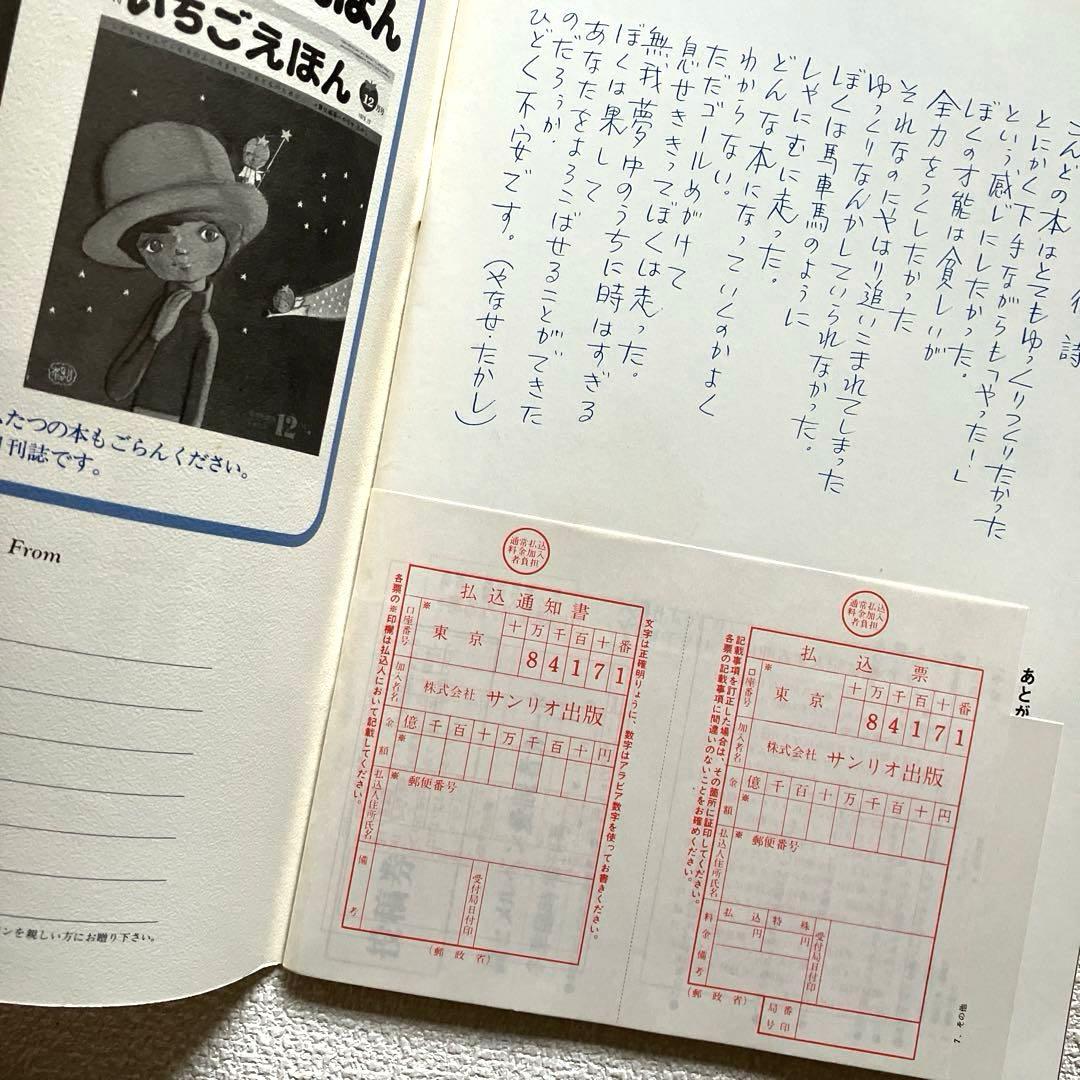 いちごえほん
12
12
たつの本もごらんください。
刊誌です。
From
ンを親しい方にお贈り下さい。
こんどの本はとてもゆっくりつくりたかった
とにかく下手ながらも「やったー!」
という感じにしたかった。
ぼくの才能は貧しいが
全力をつくしたかった
それなのにやはり追いこまれてしまった
ゆっくりなんかしていられなかった。
ぼくは馬車馬のように
しゃにむに走った。
どんな本になっていくのかよく
わからない。
ただゴールめがけて
息せききってぼくは走った。
無我夢中のうちに時はすぎる
ぼくは果して
あなたをよろこばせることができた
のだろうか
ひどく不安です。(やなせ・たかし)
通常払込
料金加入
者負担
払込通知書
各票の※印欄は払込人において記載してください。
口座番号
※
東京
十万千百十番
84171
加入者名
株式会社 サンリオ出版
金額
億千百十万千百十円
※
払込人住所氏名
※郵便番号
備考
受付局日付印
(郵政省)
文字は正確明りょうに、数字はアラビア数字を使ってお書きください。
通常払込
料金加入
者負担
払込票
記載事項を訂正した場合は、その箇所に証印してください。
各票の記載事項に間違いのないことをお確めください。
口座番号
※
東京
十万千百十番
84171
加入者名
株式会社 サンリオ出版
金額
億千百十万千百十円
※
払込人住所氏名
※郵便番号
料金
払込
円
特殊
円
備考
受付局日付印
(郵政省)
局番号
印
あとが
7.その他